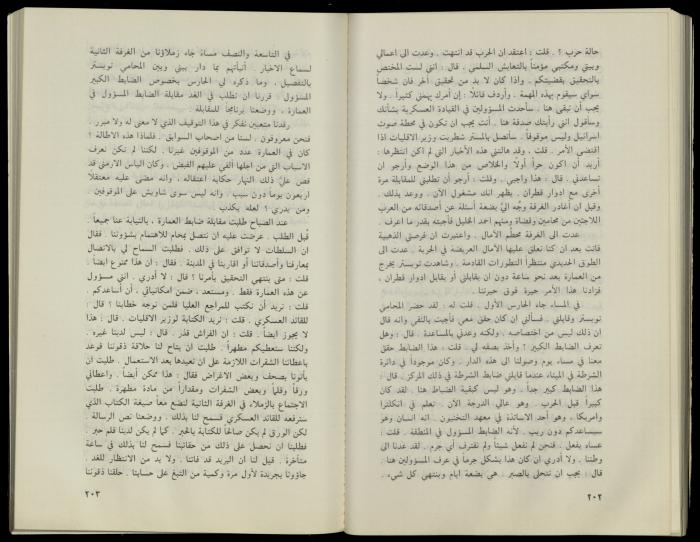 حالة حرب ؟ . قلت : اعتقد ان الحرب قد انتهت . وعدت الى اعمالي
وبيتي ومكتبي مؤمناً بالتعايش السلمي . قال : انني لست المختص
بالتحقيق بقضيتكم . واذا كان لا بد من تحقيق آخر فان شخصاً
سواي سيقوم بهذه المهمة . وأردف قائلاً : إن أمرك يهمني كثيراً . ولا
يجب أن تبقى هنا . سأحدث المسؤولين في القيادة العسكرية بشأنك
وسأقول انني رأيتك صدفة هنا . وأنت يجب ان تكون في محطة صوت
اسرائيل وليس موقوفاً . سأتصل بالمستر شطريت وزير الاقليات اذا
اقتضى الأمر . قلت . وقد هالتني هذه الأخبار التي لم اكن انتظرها :
أريد أن اكون حراً أولاً والخلاص من هذا الوضع وأرجو ان
تساعدني . قال : هذا واجبي . وقلت : أرجو أن تطلبني للمقابلة مرة
أخرى مع ادوار قطران . يظهر انك مشغول الآن . ووعد بذلك .
وقبل ان أغادر الغرفة وجّه اليّ بضعة أسئلة عن أصدقائه من العرب
اللاجئين من محامين وقضاة ومنهم احمد الخليل فأجبته بقدر ما اعرف .
عدت الى الغرفة محطّم الآمال . واعتبرت ان فرصتي الذهبية
فاتت بعد ان كنا نعلق عليها الآمال العريضة في الحرية . عدت الى
الطوق الحديدي منتظراً التطورات القادمة . وشاهدت توبستر يخرج
من العمارة بعد نحو ساعة دون ان يقابلني أو يقابل ادوار قطران ،
فزادنا هذا الأمر حيرة فوق حيرتنا .
في المساء جاء الحارس الأول . قال لي : قلت له : لقد حضر المحامي
توبستر وقابلني . فسألني ان كان حقق معي فأجبت بالنفي وانه قال
ان ذلك ليس من اختصاصه . ولكنه وعدني بالمساعدة . قال : وهل
تعرف الضابط الكبير ؟ وأخذ يصفه لي . قلت : هذا الضابط حقق
معنا في مساء يوم وصولنا الى هذه الدار . وكان موجوداً في دائرة
الشرطة في الميناء عندما قابلني ضابط الشرطة في ذلك المركز . قال :
هذا الضابط كبير جداً . وهو ليس كبقية الضباط هنا . لقد كان
كبيراً قبل الحرب . وهو عالي الدرجة الآن . تعلم في انكلترا
وامريكا ، وهو أحد الاساتذة في معهد التخنيون . انه انسان وهو
سيساعدكم دون ريب . لأنه الضابط المسؤول في المنطقة . قلت :
عساه يفعل . فنحن لم نفعل شيئاً ولم نقترف أي جرم . لقد عدنا الى
وطننا . ولا أدري ان كان هذا يشكل جرماً في عرف المسؤولين هنا .
قال : يجب ان تتحلى بالصبر . هي بضعة ايام وينتهي كل شيء .
٢٠٢
في التاسعة والنصف مساءً جاء زملاؤنا من الغرفة الثانية
لسماع الاخبار . أنبأتهم بما دار بيني وبين المحامي توبستر
بالتفصيل . وما ذكره لي الحارس بخصوص الضابط الكبير
المسؤول . قررنا ان نطلب في الغد مقابلة الضابط المسؤول في
العمارة ، ووضعنا برنامجاً للمقابلة .
رقدنا متعبين نفكر في هذا التوقيف الذي لا معنى له ولا مبرر .
فنحن معروفون . لسنا من اصحاب السوابق . فلماذا هذه الاطالة ؟
كان في العمارة عدد من الموقوفين غيرنا . لكننا لم نكن نعرف
الاسباب التي من اجلها القي عليهم القبض . وكان الياس الارمني قد
قص عليّ ذلك النهار حكاية اعتقاله ، وانه مضى عليه معتقلاً
اربعون يوماً دون سبب . وانه ليس سوى شاويش على الموقوفين .
ومن يدري ؟ لعله يكذب
عند الصباح طلبت مقابلة ضابط العمارة . بالنيابة عنا جميعاً .
قبل الطلب . عرضت عليه ان نتصل بمحام للاهتمام بشؤوننا . فقال
ان السلطات لا توافق على ذلك . فطلبت السماح لي بالاتصال
بمعارفنا وأصدقائنا أو اقاربنا في المدينة . فقال : ان هذا ممنوع ايضاً .
قلت : متى ينتهي التحقيق بأمرنا ؟ قال : لا أدري . انني مسؤول
عن هذه العمارة فقط . ومستعد ، ضمن امكانياتي ، أن أساعدكم .
قلت : نريد أن نكتب للمراجع العليا فلمن نوجه خطابنا ؟ قال :
للقائد العسكري . قلت : نريد الكتابة لوزير الاقليات . قال : هذا
لا يجوز ايضاً . قلت : ان الفراش قذر . قال : ليس لدينا غيره .
ولكننا سنعطيكم مطهراً . طلبت ان يتاح لنا حلاقة ذقوننا فوعد
باعطائنا الشفرات اللازمة على ان نعيدها بعد الاستعمال . طلبت ان
يأتونا بصحف وبعض الاغراض فقال : هذا ممكن أيضاً . واعطاني
ورقاً وقلماً وبعض الشفرات ومقداراً من مادة مطهرة . طلبت
الاجتماع بالزملاء في الغرفة الثانية لنضع معاً صيغة الكتاب الذي
سنرفعه للقائد العسكري فسمح لنا بذلك . ووضعنا نص الرسالة .
لكن الورق لم يكن صالحاً للكتابة بالحبر . كما لم يكن لدينا قلم حبر .
فطلبنا ان نحصل على ذلك من حقائبنا فسمح لنا بذلك في ساعة
متأخرة . قيل لنا ان البريد قد فاتنا . ولا بد من الانتظار للغد .
جاؤونا بجريدة لأول مرة وكمية من التبغ على حسابنا . حلقنا ذقوننا
٢٠٣